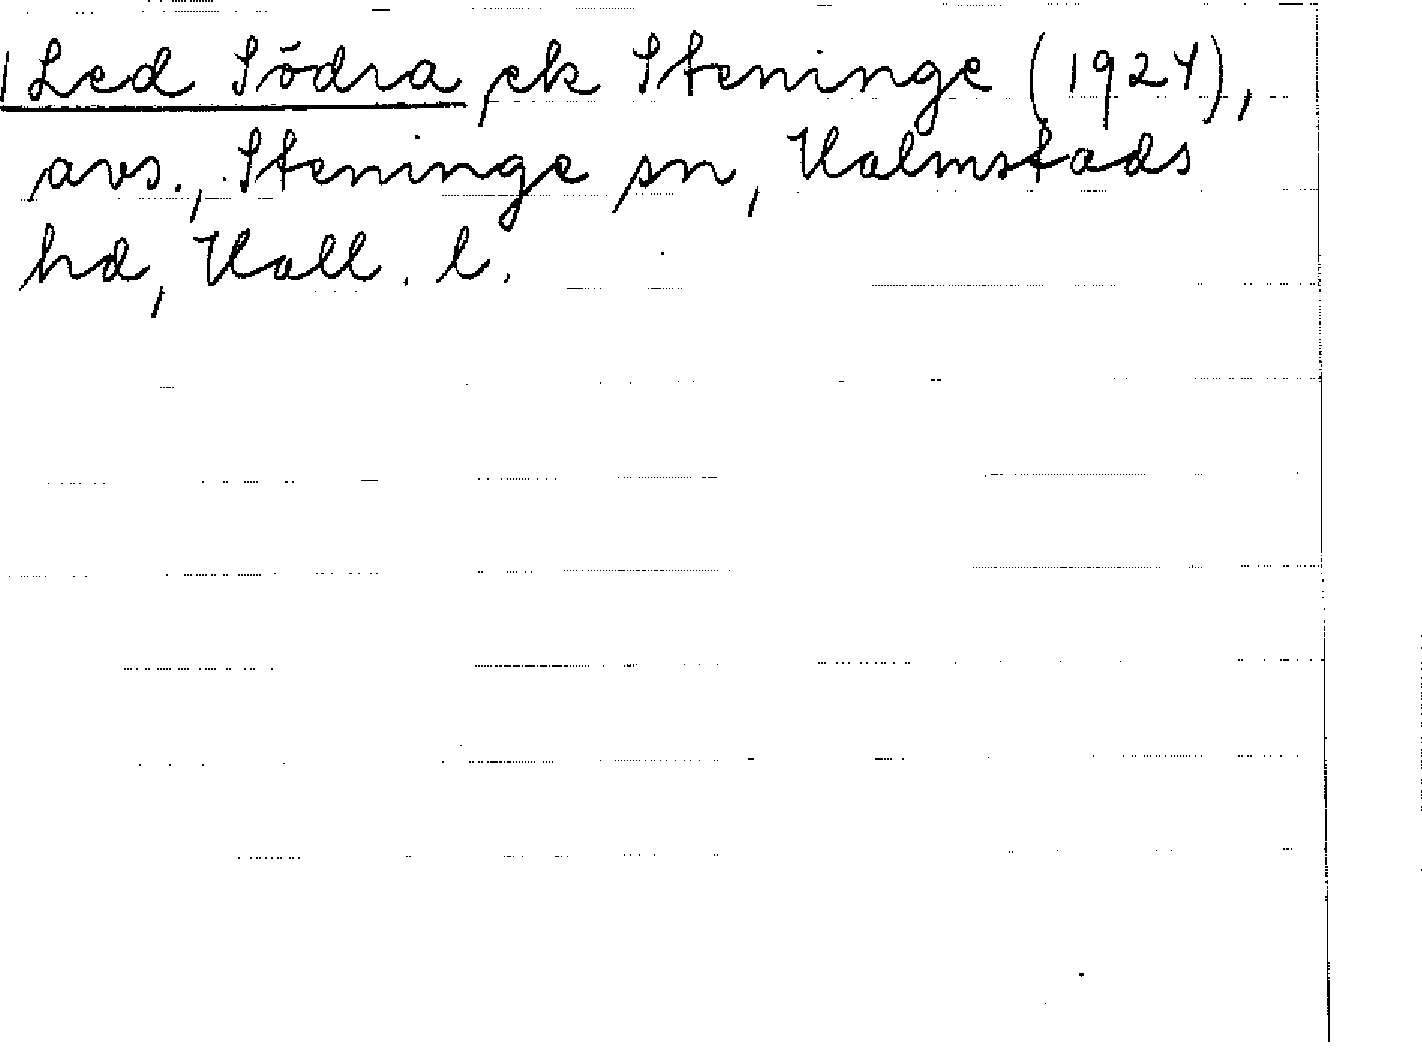 Led Södra, ek Steninge (1924),
avs., Steninge sn, Halmstads
hd, Hall. l.